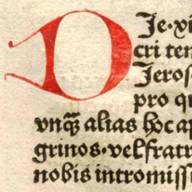 DIe·xi
cri ten
Jeros
pro q
vnq̃ alias hoc ap
grinos·vel fratr
nobis intromiss